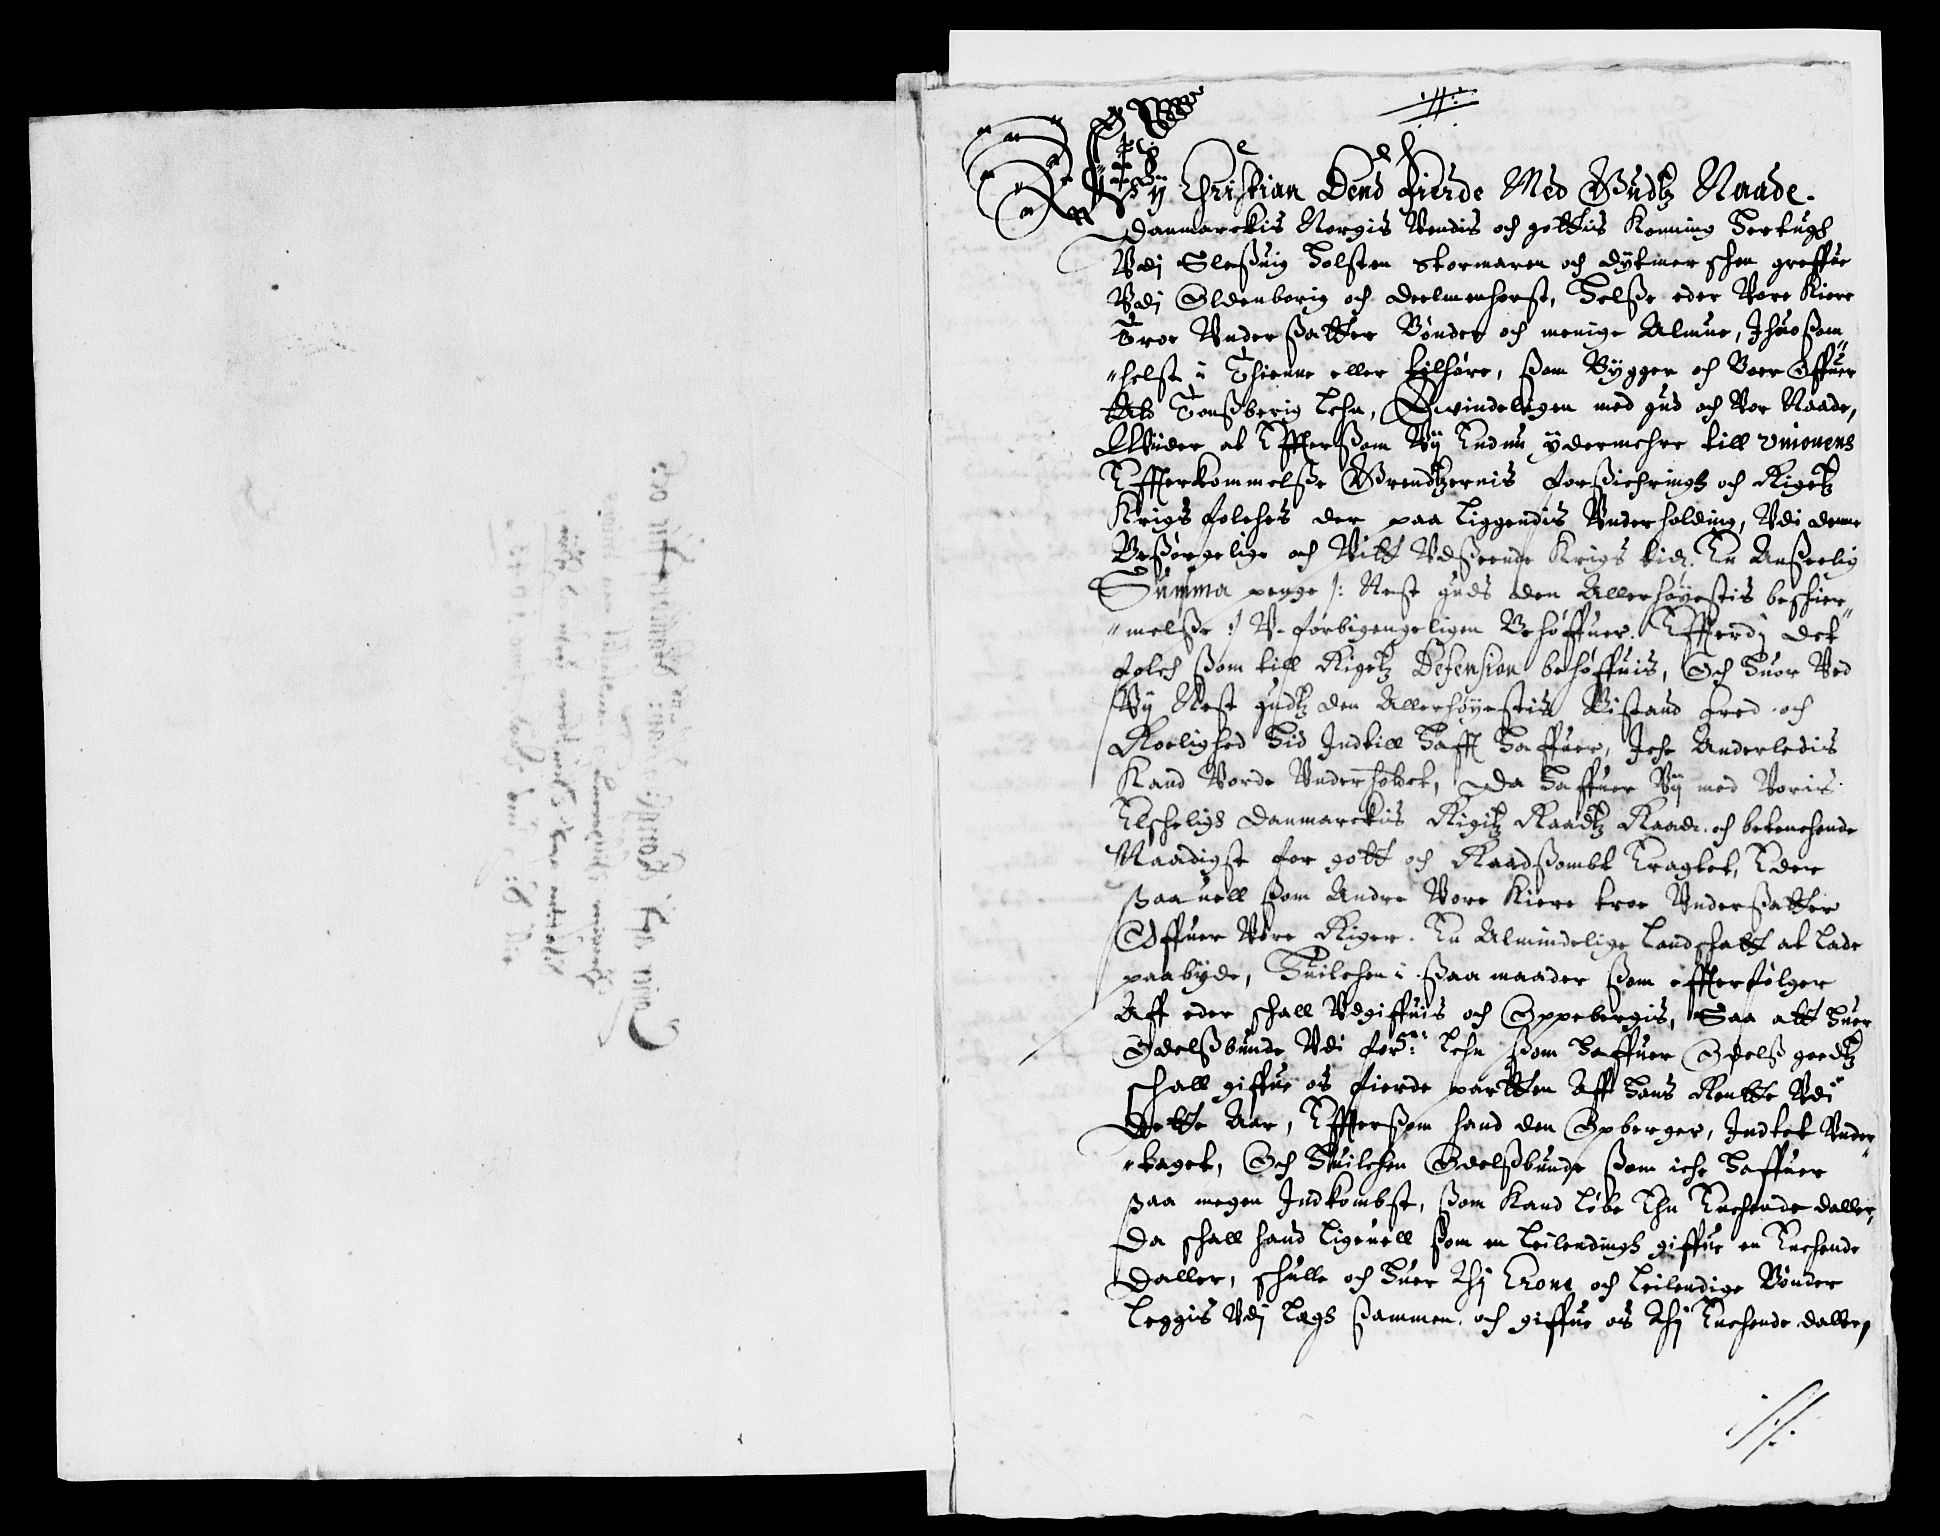 Wy Christian Dend Fierde Med Gudtz Naade.
Danmarckis Norgis Vendis och gottis Konning Hertugh
Vdj Sleßuig Holsten Stormaren och Dytmerschen greffue
Vdj Oldenborig och Deelmenhorst, Helße eder Vore Kiere
Troe Vnderßatter Bønder och menige Almue, Jhuoßom
"helst i Thienne eller tilhøre, ßom Bygger och Boer Offuer
Ald Tonßberig Lehn, Quindeligen med gud och Vor Naade,
Wider at Effterßom Wy Endnu ydermehre till Vnionens
Effterkommelße Grendtzernis forßichringh och Rigetz
Krigs folches der paa liggendis Vnderholding, Vdi denne
Beßørgelige och Vitt Vdßeende Krigs tid. En Anßeelig
Summa penge /: Nest guds den Allerhøyestis beschier"
"melße :/ V-forbigengeligen Behøffuer. Effterdj det
folch ßom till Rigetz Defension behøffuis, Och Huor Ved
Wy Nest gudtz den Allerhøyestis Bistand fred och
Roelighed Hid Indtill Hafft Haffuer, Iche Anderledis
Kand Vorde Vnderholdet, Da Haffuer Wy med Voris
Elscheligh Danmarckis Rigitz Raadtz Raad. och betenchende
Naadigst for gott och Raadßombt Eragtet, Eder
ßaauell ßom Andre Vore Kiere troe Vnderßatter
Offuer Vore Riger. En Almindelige Landschatt at lade
paabyde, Huilchen i ßaa maader ßom effterfølger
Aff eder schall Vdgiffuis och Oppebergis, Saa att Huer
Odelßbunde Vdi ford: Lehn ßom Haffuer Odelß goedtz
schall giffue os fierde partten Aff Hans Rentte Vdi
Dette Aar, Effterßom hand den Opberger, Indtet Vnder"
"taget, Och Huilchen Odelßbunde ßom iche Haffuer
ßaa megen Indkombst, ßom Kand løbe Thn Enchende daller,
Da schall hand ligeuell ßom en Leilendingh giffue en Enchende
Daller, schulle och Huer Thj Crone och Leilendige Bønder
Leggis Vdj Legh ßammen och giffue os Thj Enchende daller,